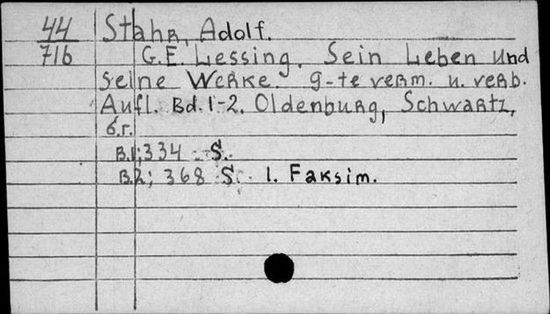 44 Stahr, Adolf.
716 G. E. Lessing. Sein Leben und
seine Werke. 9-te verm. u. verb.
Aufl. Bd. 1-2. Oldenburg, Schwartz,
б.г.
B.1; 334 S.
B.2; 368 S. 1. Faksim.